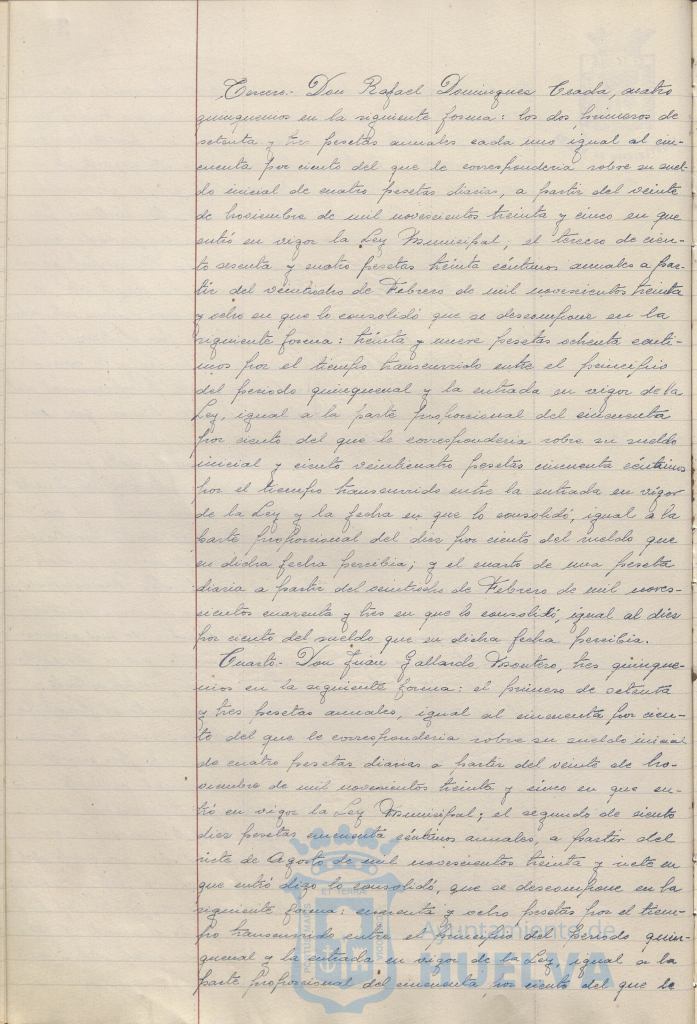 Tercero.- Don Rafael Dominguez Criada, cuatro
quinquenios en la siguiente forma: los dos primeros de
setenta y tres pesetas anuales cada uno igual al cin-
cuenta por ciento del que le corresponderia sobre su suel-
do inicial de cuatro pesetas diarias, a partir del veinte
de Noviembre de mil novecientos treinta y cinco en que
entró en vigor la Ley Municipal; el tercero de cien-
to sesenta y cuatro pesetas treinta céntimos anuales a par-
tir del veintiocho de Febrero de mil novecientos treinta
y ocho en que lo consolidó que se descompone en la
siguiente forma: treinta y nueve pesetas ochenta cénti-
mos por el tiempo transcurrido entre el principio
del periodo quinquenal y la entrada en vigor de la
Ley, igual a la parte proporcional del cincuenta
por ciento del que le corresponderia sobre su sueldo
inicial y ciento veinticuatro pesetas cincuenta céntimos
por el tiempo transcurrido entre la entrada en vigor
de la Ley y la fecha en que lo consolidó, igual a la
parte proporcional del diez por ciento del sueldo que
en dicha fecha percibia; y el cuarto de una peseta
diaria a partir del veintiocho de Febrero de mil noves-
cientos cuarenta y tres en que lo consolidó, igual al diez
por ciento del sueldo que en dicha fecha percibia.
Cuarto.- Don Juan Gallardo Montero, tres quinque-
nios en la siguiente forma: el primero de setenta
y tres pesetas anuales, igual al cincuenta por cien-
to del que le corresponderia sobre su sueldo inicial
de cuatro pesetas diarias a partir del veinte de No-
viembre de mil novecientos treinta y cinco en que en-
tró en vigor la Ley Municipal; el segundo de ciento
diez pesetas cincuenta céntimos anuales, a partir del
siete de Agosto de mil novecientos treinta y siete en
que entró digo lo consolidó, que se descompone en la
siguiente forma: cincuenta y ocho pesetas por el tiem-
po transcurrido entre el principio del periodo quin-
quenal y la entrada en vigor de la Ley, igual a la
parte proporcional del cincuenta por ciento del que le
Ayuntamiento de
HUELVA